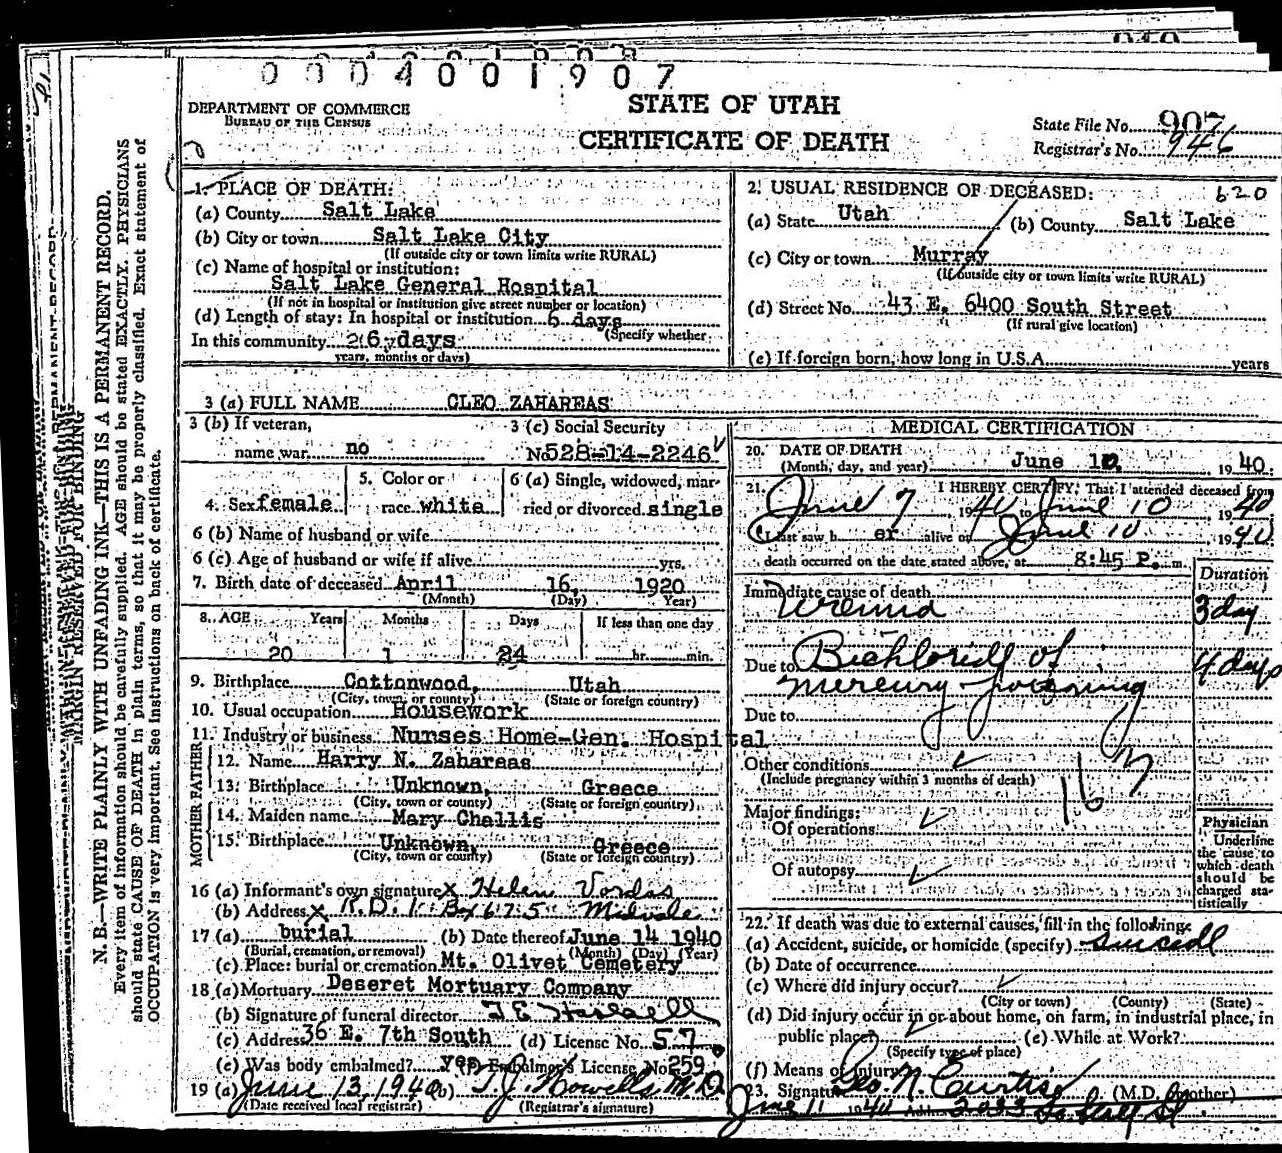 0004001907
DEPARTMENT OF COMMERCE
BUREAU OF THE CENSUS
STATE OF UTAH
CERTIFICATE OF DEATH
State File No. 907
Registrar's No. 946
N. B.—WRITE PLAINLY WITH UNFADING INK—THIS IS A PERMANENT RECORD.
Every item of information should be carefully supplied. AGE should be stated EXACTLY. PHYSICIANS
should state CAUSE OF DEATH in plain terms, so that it may be properly classified. Exact statement of
OCCUPATION is very important. See instructions on back of certificate.
MARGIN RESERVED FOR BINDING
1. PLACE OF DEATH:
(a) County Salt Lake
(b) City or town Salt Lake City
(If outside city or town limits write RURAL)
(c) Name of hospital or institution:
Salt Lake General Hospital
(If not in hospital or institution give street number or location)
(d) Length of stay: In hospital or institution 6 days
(Specify whether
In this community 26 days
years, months or days)
2. USUAL RESIDENCE OF DECEASED: 620
(a) State Utah (b) County Salt Lake
(c) City or town Murray
(If outside city or town limits write RURAL)
(d) Street No. 43 E. 6400 South Street
(If rural give location)
(e) If foreign born, how long in U.S.A. years
3 (a) FULL NAME CLEO ZAHAREAS
3 (b) If veteran, 3 (c) Social Security
name war no No 528-14-2246
4. Sex female 5. Color or race white 6 (a) Single, widowed, married or divorced single
6 (b) Name of husband or wife
6 (c) Age of husband or wife if alive yrs.
7. Birth date of deceased April 16, 1920
(Month) (Day) Year)
8. AGE Years Months Days If less than one day
20 1 24 hr. min.
9. Birthplace Cottonwood, Utah
(City, town or county) (State or foreign country)
10. Usual occupation Housework
11. Industry or business Nurses Home-Gen. Hospital
FATHER
12. Name Harry N. Zahareas
13. Birthplace Unknown, Greece
(City, town or county) (State or foreign country)
MOTHER
14. Maiden name Mary Challis
15. Birthplace Unknown, Greece
(City, town or county) (State or foreign country)
16 (a) Informant's own signature x Helen Vordas
(b) Address x R.D. 1 Bx 675 Midvale
17 (a) burial (b) Date thereof June 14 1940
(Burial, cremation, or removal) (Month) (Day) (Year)
(c) Place: burial or cremation Mt. Olivet Cemetery
18 (a) Mortuary Deseret Mortuary Company
(b) Signature of funeral director
(c) Address 36 E. 7th South (d) License No. 57
(e) Was body embalmed? yes (f) Embalmer's License No 259
19 (a) June 13, 1940 (b) T.J. Howells M.D.
(Date received local registrar) (Registrar's signature)
MEDICAL CERTIFICATION
20. DATE OF DEATH
(Month, day, and year) June 10, 1940
21. I HEREBY CERTIFY, That I attended deceased from
June 7, 1940 to June 10 1940
I last saw her alive on June 10 1940
death occurred on the date stated above, at 8:45 P. m.
Duration
Immediate cause of death
Uremia 3 day
Due to Bichloride of 4 days
mercury poisoning
Due to
Other conditions
(Include pregnancy within 3 months of death)
163
Major findings:
Of operations
Of autopsy
Physician
Underline
the cause to
which death
should be
charged sta-
tistically
22. If death was due to external causes, fill in the following:
(a) Accident, suicide, or homicide (specify) suicide
(b) Date of occurrence
(c) Where did injury occur?
(City or town) (County) (State)
(d) Did injury occur in or about home, on farm, in industrial place, in
public place? (e) While at Work?
(Specify type of place)
(f) Means of Injury
23. Signature Geo. N. Curtis (M.D. or other)
June 11 1940 Add.